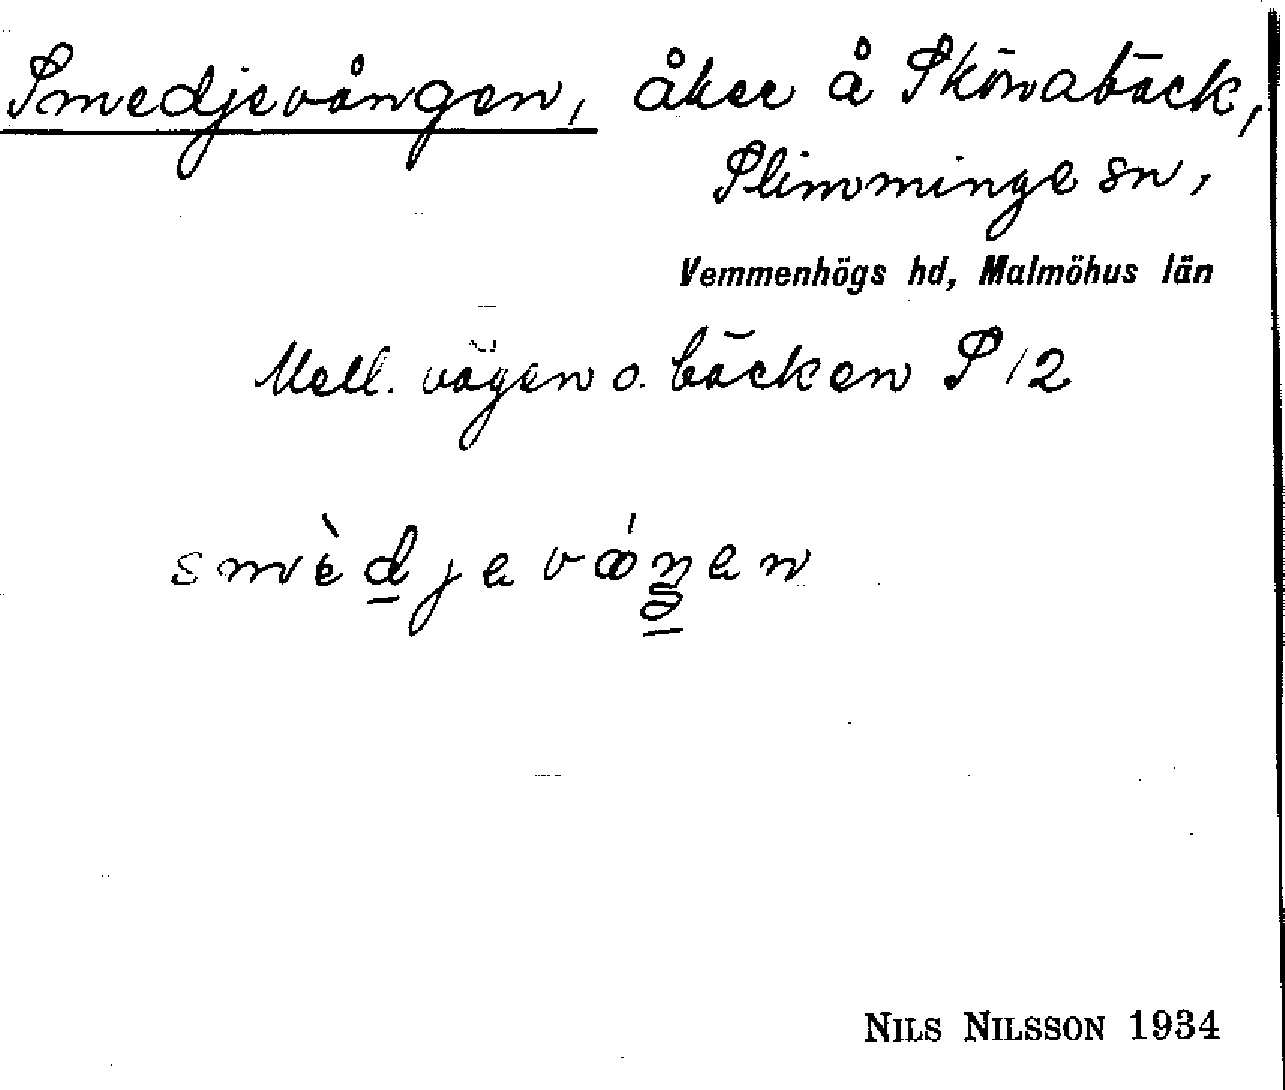 Smedjevången, åker å Skönabäck,
Slimminge sn,
Vemmenhögs hd, Malmöhus län
Mell. vägen o. bäcken S 12
NILS NILSSON 1934